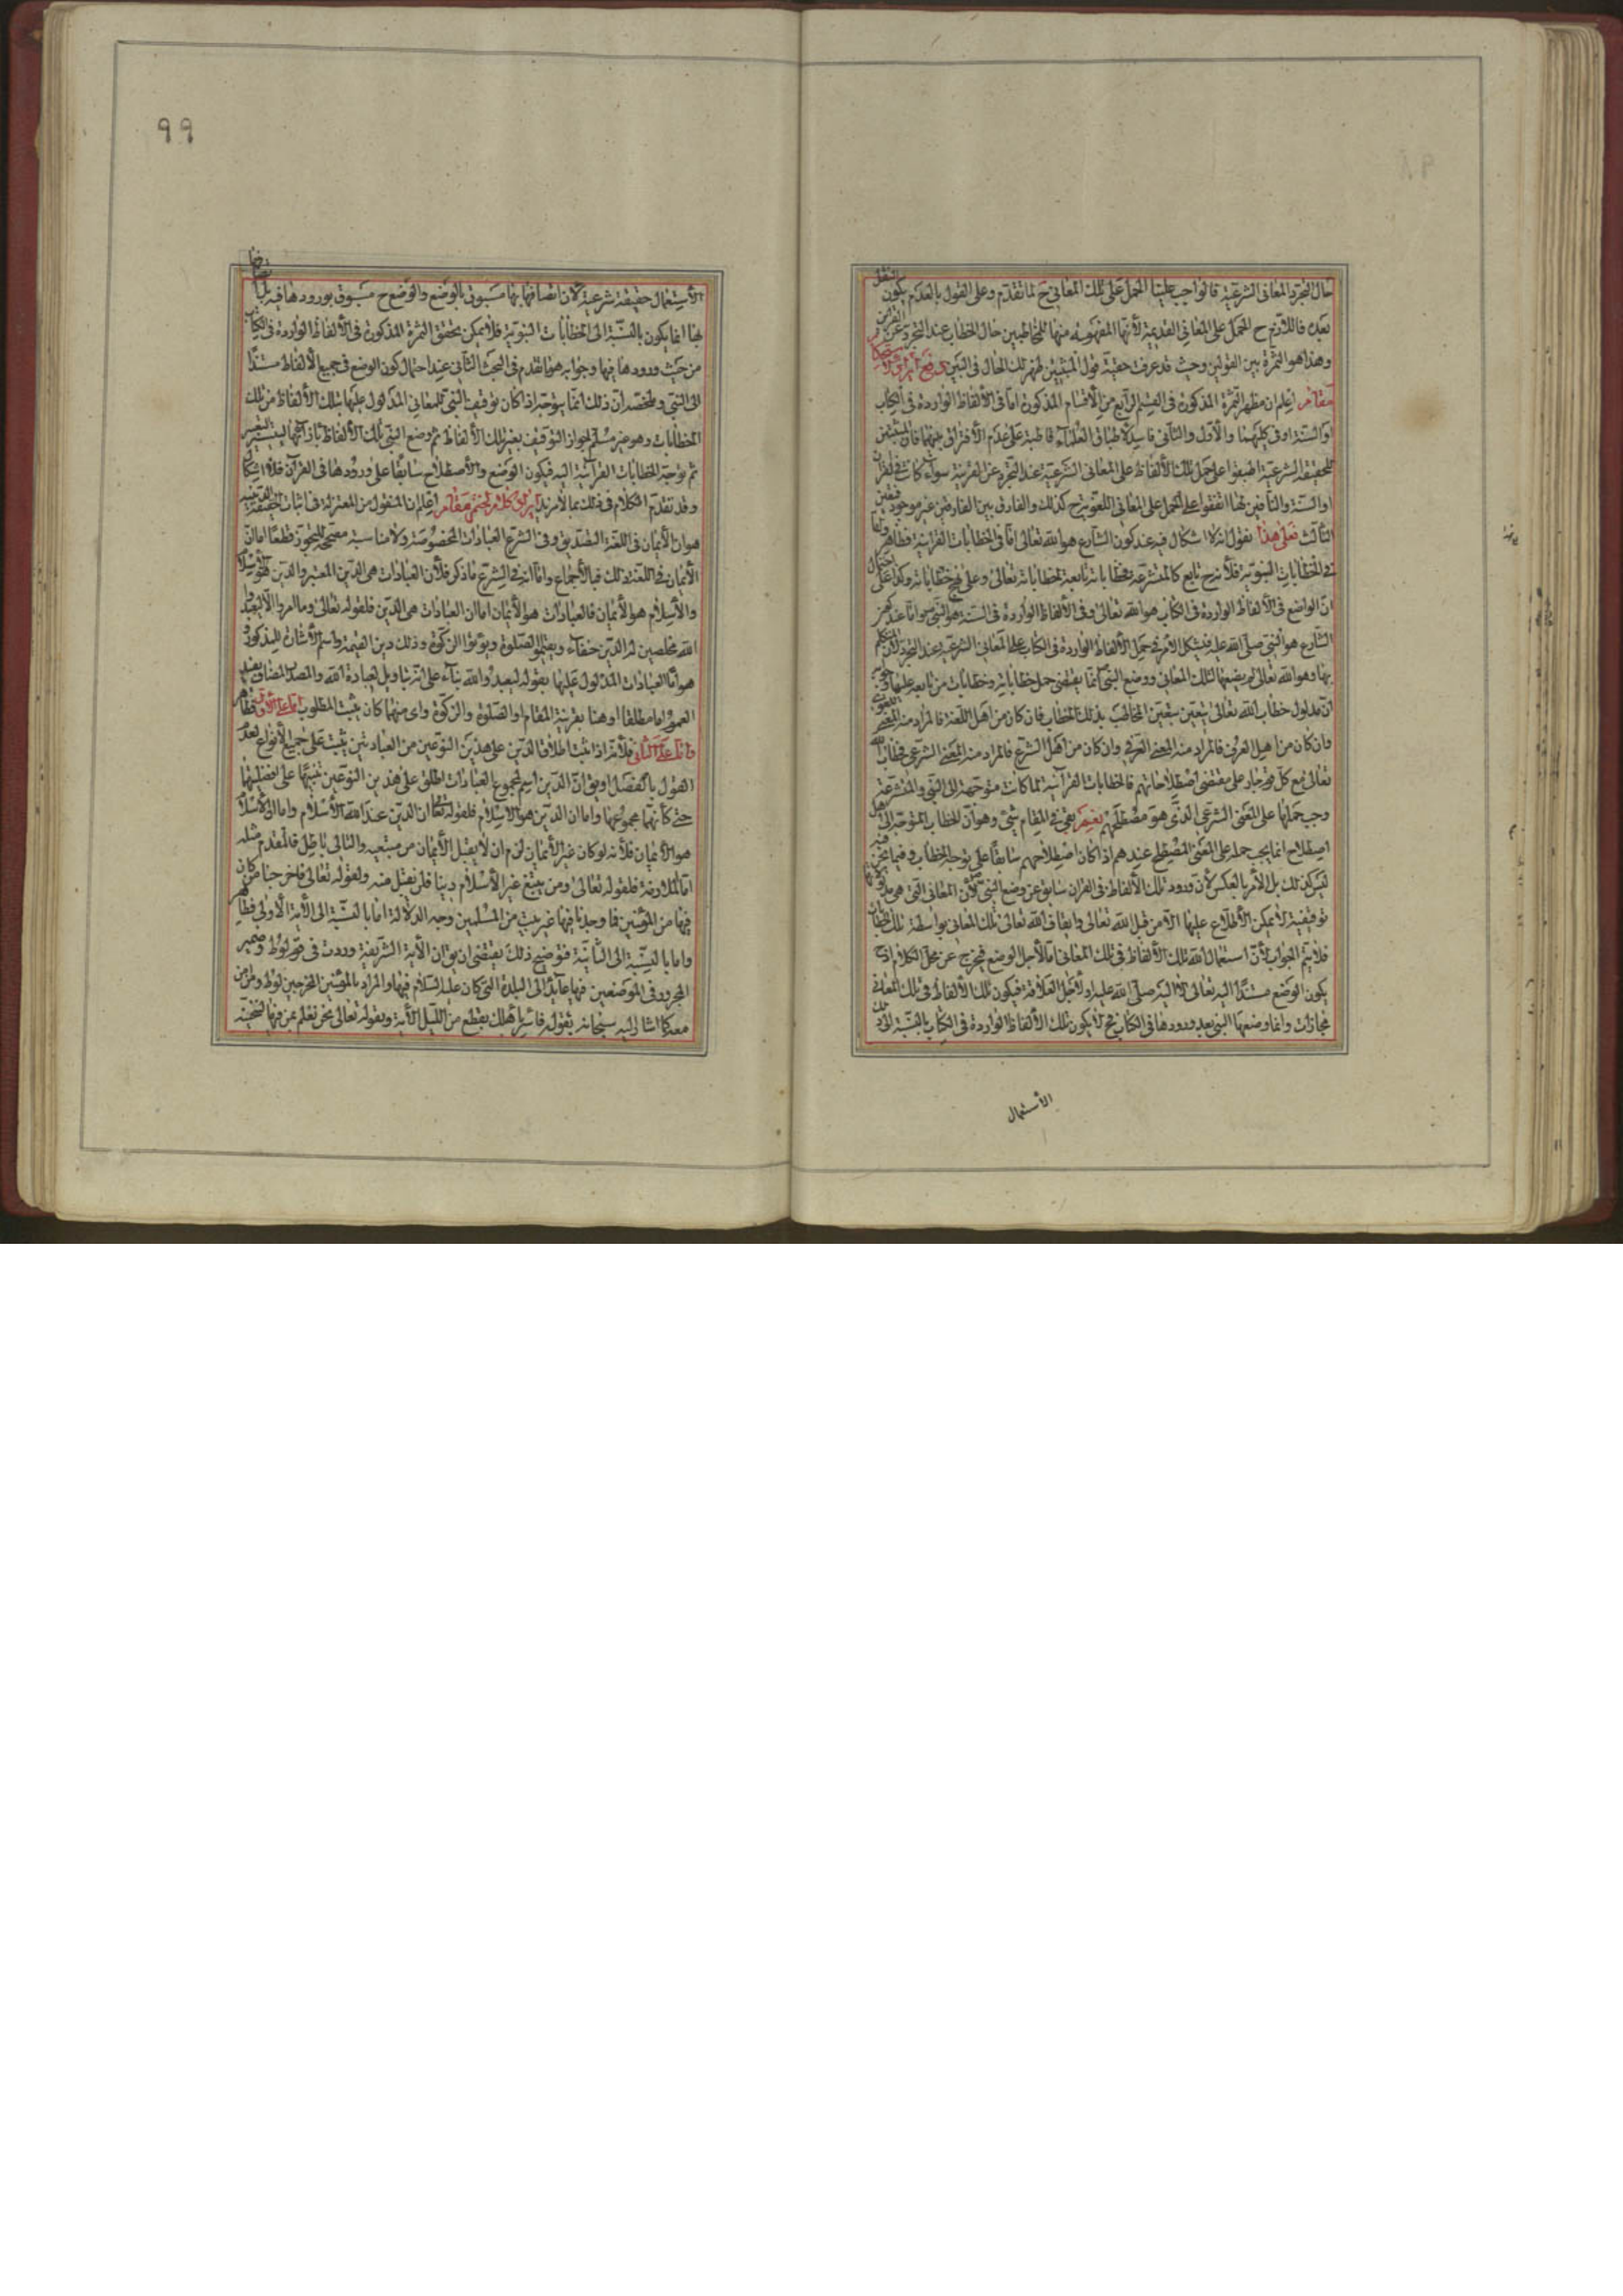 حال التجرد المعانى الشرعية فالواجب علينا الحمل على تلك المعانى ح لما تقدم وعلى القول بالعدم يكون النقل
بعده فاللازم ح الحمل على المعانى القديمة لأنها المفهومة منها للمخاطبين حال الخطاب عند التجرد عن القرائن
وهذا هو الثمرة بين القولين وحيث قد عرفت حقية قول المثبتين ظهر لك الحال فى البين
مقام اعلم ان مظهر الثمرة المذكورة فى القسم الرابع من الأقسام المذكورة اما فى الألفاظ الواردة فى الكتاب
او السنة او فى كليهما والأول والثانى فاسد لاطباق العلماء قاطبة على عدم الأفتراق بينهما فان المثبتين
للحقيقة الشرعية اطبقوا على حمل تلك الألفاظ على المعانى الشرعية عند التجرد عن القرينة سواء كانت فى القران
او السنة والنافين لها اتفقوا على الحمل على المعانى اللغوية ح كذلك والفارق بين الفارقين غير موجود فتعين
الثالث فعلى هذا نقول انه لا اشكال فيه عند كون الشارع هو الله تعالى اما فى الخطابات القرانية فظاهر واما
فى الخطابات النبوية فلأنه ح تابع كالمتشرعة فخطاباته تابعة لخطاباته تعالى وكذا على احتمال
ان الواضع فى الألفاظ الواردة فى الكتاب هو الله تعالى وفى الألفاظ الواردة فى السنة هو النبى ص واما عند كون
الشارع هو النبى صلى الله عليه فيشكل الأمر فى حمل الألفاظ الواردة فى الكتاب على المعانى الشرعية عند التجرد لأن المتكلم
بها وهو الله تعالى لم يضعها لتلك المعانى ووضع النبى انما يقتضى حمل خطاباته وخطابات من تابعه عليها
ان مدلول خطاب الله تعالى يتعين بتعين المخاطب بذلك الخطاب فان كان من اهل اللغة فالمراد منه المعنى اللغوى
وان كان من اهل العرف فالمراد منه المعنى العرفى وان كان من اهل الشرع فالمراد منه المعنى الشرعى فخطاب الله
تعالى مع كل قوم جار على مقتضى اصطلاحاتهم فالخطابات القرآنية لما كانت متوجهة الى النبى والمتشرعة
وجب حملها على المعنى الشرعى الذى هو مصطلحهم نعم بقى فى المقام شئ وهو ان الخطاب المتوجه الى اهل
اصطلاح انما يجب حمله على المعنى المصطلح عندهم اذا كان اصطلاحهم سابقا على توجه الخطاب وفيما نحن فيه
ليس كذلك بل الأمر بالعكس لأن ورود تلك الألفاظ فى القران سابق عن وضع النبى لأن المعانى التى هى
توقيفية لا يمكن الأطلاع عليها الا من قبل الله تعالى وايقاف الله تعالى تلك المعانى بواسطة تلك الخطابات
فلا يتم الجواب لأن استعمال الله تلك الألفاظ فى تلك المعانى اما لأجل الوضع فيخرج عن محل الكلام اذ ح
يكون الوضع مستندا اليه تعالى لا اليه صلى الله عليه او لأجل العلاقة فيكون تلك الألفاظ فى تلك المعانى
مجازات وانما وضعها النبى بعد ورودها فى الكتاب فح لا يكون تلك الألفاظ الواردة فى الكتاب بالنسبة الى ذلك
الأستعمال
٩٩
الأستعمال حقيقة شرعية لأن اتصافها بها مسبوق بالوضع والوضع ح مسبوق بورودها فيه
بها انما يكون بالنسبة الى الخطابات النبوية فلا يمكن تحقق الثمرة المذكورة فى الألفاظ الواردة فى الكتاب
من حيث ورودها فيها وجوابه هو ما تقدم فى البحث الثانى عند احتمال كون الوضع فى جميع الألفاظ مستندا
الى النبى وملخصه ان ذلك انما يتوجه اذا كان توقيف النبى للمعانى المدلول عليها بتلك الألفاظ من تلك
الخطابات وهو غير مسلم لجواز التوقيف بغير تلك الألفاظ ثم وضع النبى تلك الألفاظ بازائها ليتيسر التعبير
ثم توجه الخطابات القرآنية اليه فيكون الوضع والأصطلاح سابقا على ورودها فى القرآن فلا اشكال
وقد تقدم الكلام فى ذلك بما لا مزيد اعلم ان المنقول من المعتزلة فى اثبات الحقيقة الدينية
هو ان الأيمان فى اللغة التصديق وفى الشرع العبادات المخصوصة ولا مناسبة مصححة للتجوز قطعا اما ان
الأيمان فى اللغة ذلك فبالأجماع واما انه فى الشرع ما ذكر فلأن العبادات هى الدين المعتبر والدين هو الأسلام
والأسلام هو الأيمان فالعبادات هو الأيمان اما ان العبادات هى الدين فلقوله تعالى وما امروا الا ليعبدوا
الله مخلصين له الدين حنفاء ويقيموا الصلوة ويؤتوا الزكوة وذلك دين القيمة واسم الأشارة للمذكور و
هو اما العبادات المدلول عليها بقوله ليعبدوا الله بناء على انه بتاويل لعبادة الله والمصدر المضاف يفيد
العموم اما مطلقا او هنا بقرينة المقام او الصلوة والزكوة واى منهما كان يثبت المطلوب اما على الأول فظاهر
واما على الثانى فلأنه اذا ثبت اطلاق الدين على هذين النوعين من العبادتين يثبت على جميع الأنواع لعدم
القول بالفصل او يق ان الدين اسم لمجموع العبادات اطلق على هذين النوعين تنبيها على افضليتهما
حتى كأنهما مجموعها واما ان الدين هو الأسلام فلقوله تعالى ان الدين عند الله الأسلام واما ان الأسلام
هو الأيمان فلأنه لو كان غير الأيمان لزم ان لا يقبل الأيمان من مبتغيه والتالى باطل فالمقدم مثله
اما الملازمة فلقوله تعالى ومن يبتغ غير الأسلام دينا فلن يقبل منه ولقوله تعالى فاخرجنا من كان
فيها من المؤمنين فما وجدنا فيها غير بيت من المسلمين وجه الدلالة اما بالنسبة الى الآية الأولى فظاهر
واما بالنسبة الى الثانية فتوضيح ذلك يقتضى ان يق ان الآية الشريفة وردت فى قوم لوط وضمير
المجرور فى الموضعين فيها عايد الى البلدة التى كان عليه السلام فيها والمراد بالمؤمنين المخرجين لوط ومن امن
معه كما اشار اليه سبحانه بقوله فاسر باهلك بقطع من الليل الأية وبقوله تعالى نحن نعلم بمن فيها لننجينه